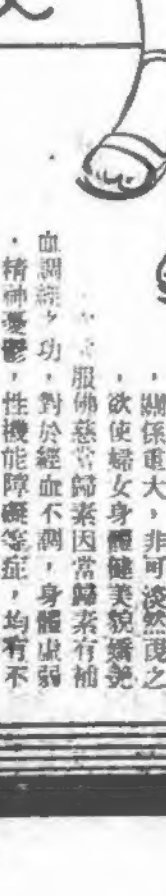 ，關係重大，非可淡然視之
，欲使婦女身體健美貌嬌艷
服佛慈當歸素因當歸素有補
血調經之功，對於經血不調，身體虛弱
，精神憂鬱，性機能障礙等症，均有不